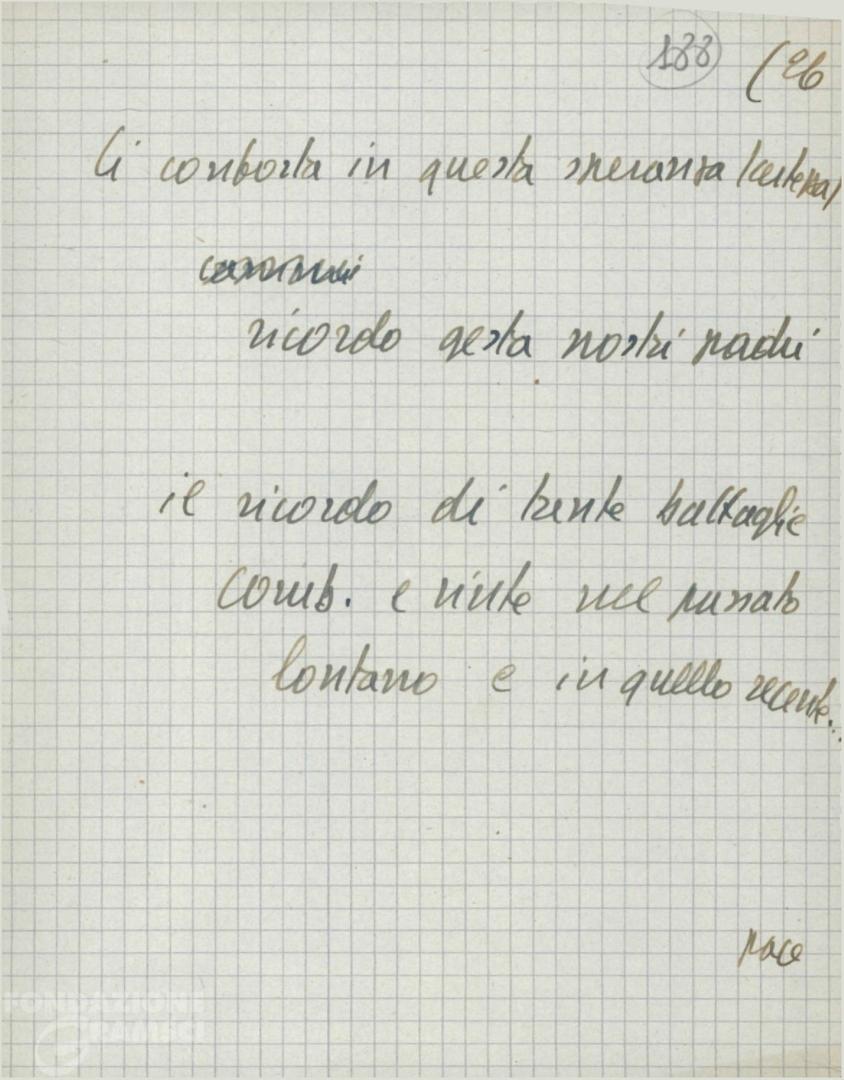 188 (26
Ci conforta in questa speranza (certezza)
ricordo gesta nostri padri
il ricordo di tante battaglie
comb. e vinte nel passato
lontano e in quello recente...
pace
FONDAZIONE
GRAMSCI